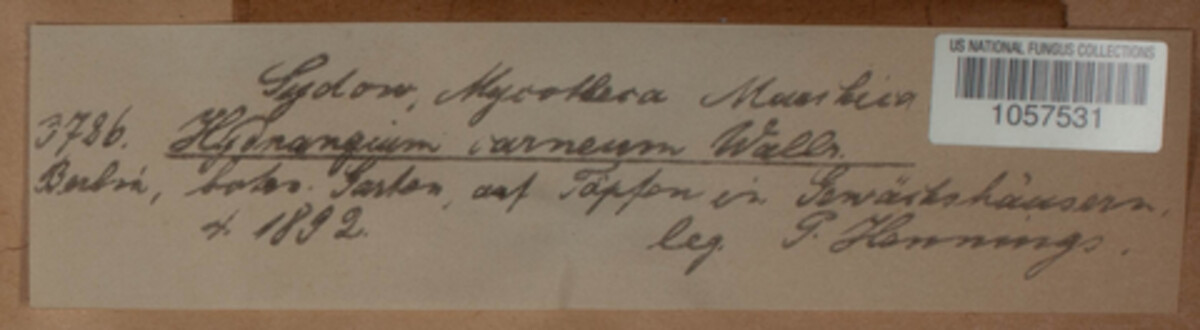 US NATIONAL FUNGUS COLLECTIONS
1057531
Sydow, Mycotheca Marchica
3786. Hydnangium carneum Wallr.
Berlin, botan. Garten, auf Töpfen in Gewächshäusern.
4. 1892. leg. P. Hennings.